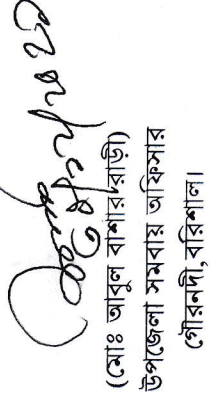 (মোঃ আবুল বাশার রাড়ী)
উপজেলা সমবায় অফিসার
গৌরনদী, বরিশাল।